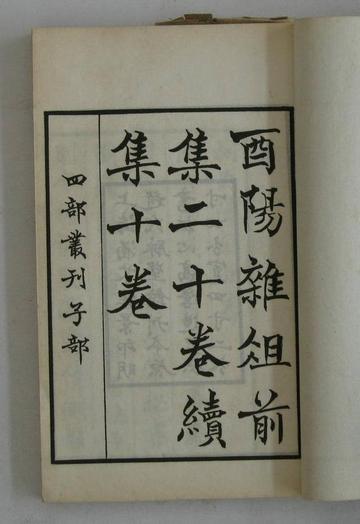 酉陽雜俎前
集二十卷續
集十卷
四部叢刊子部